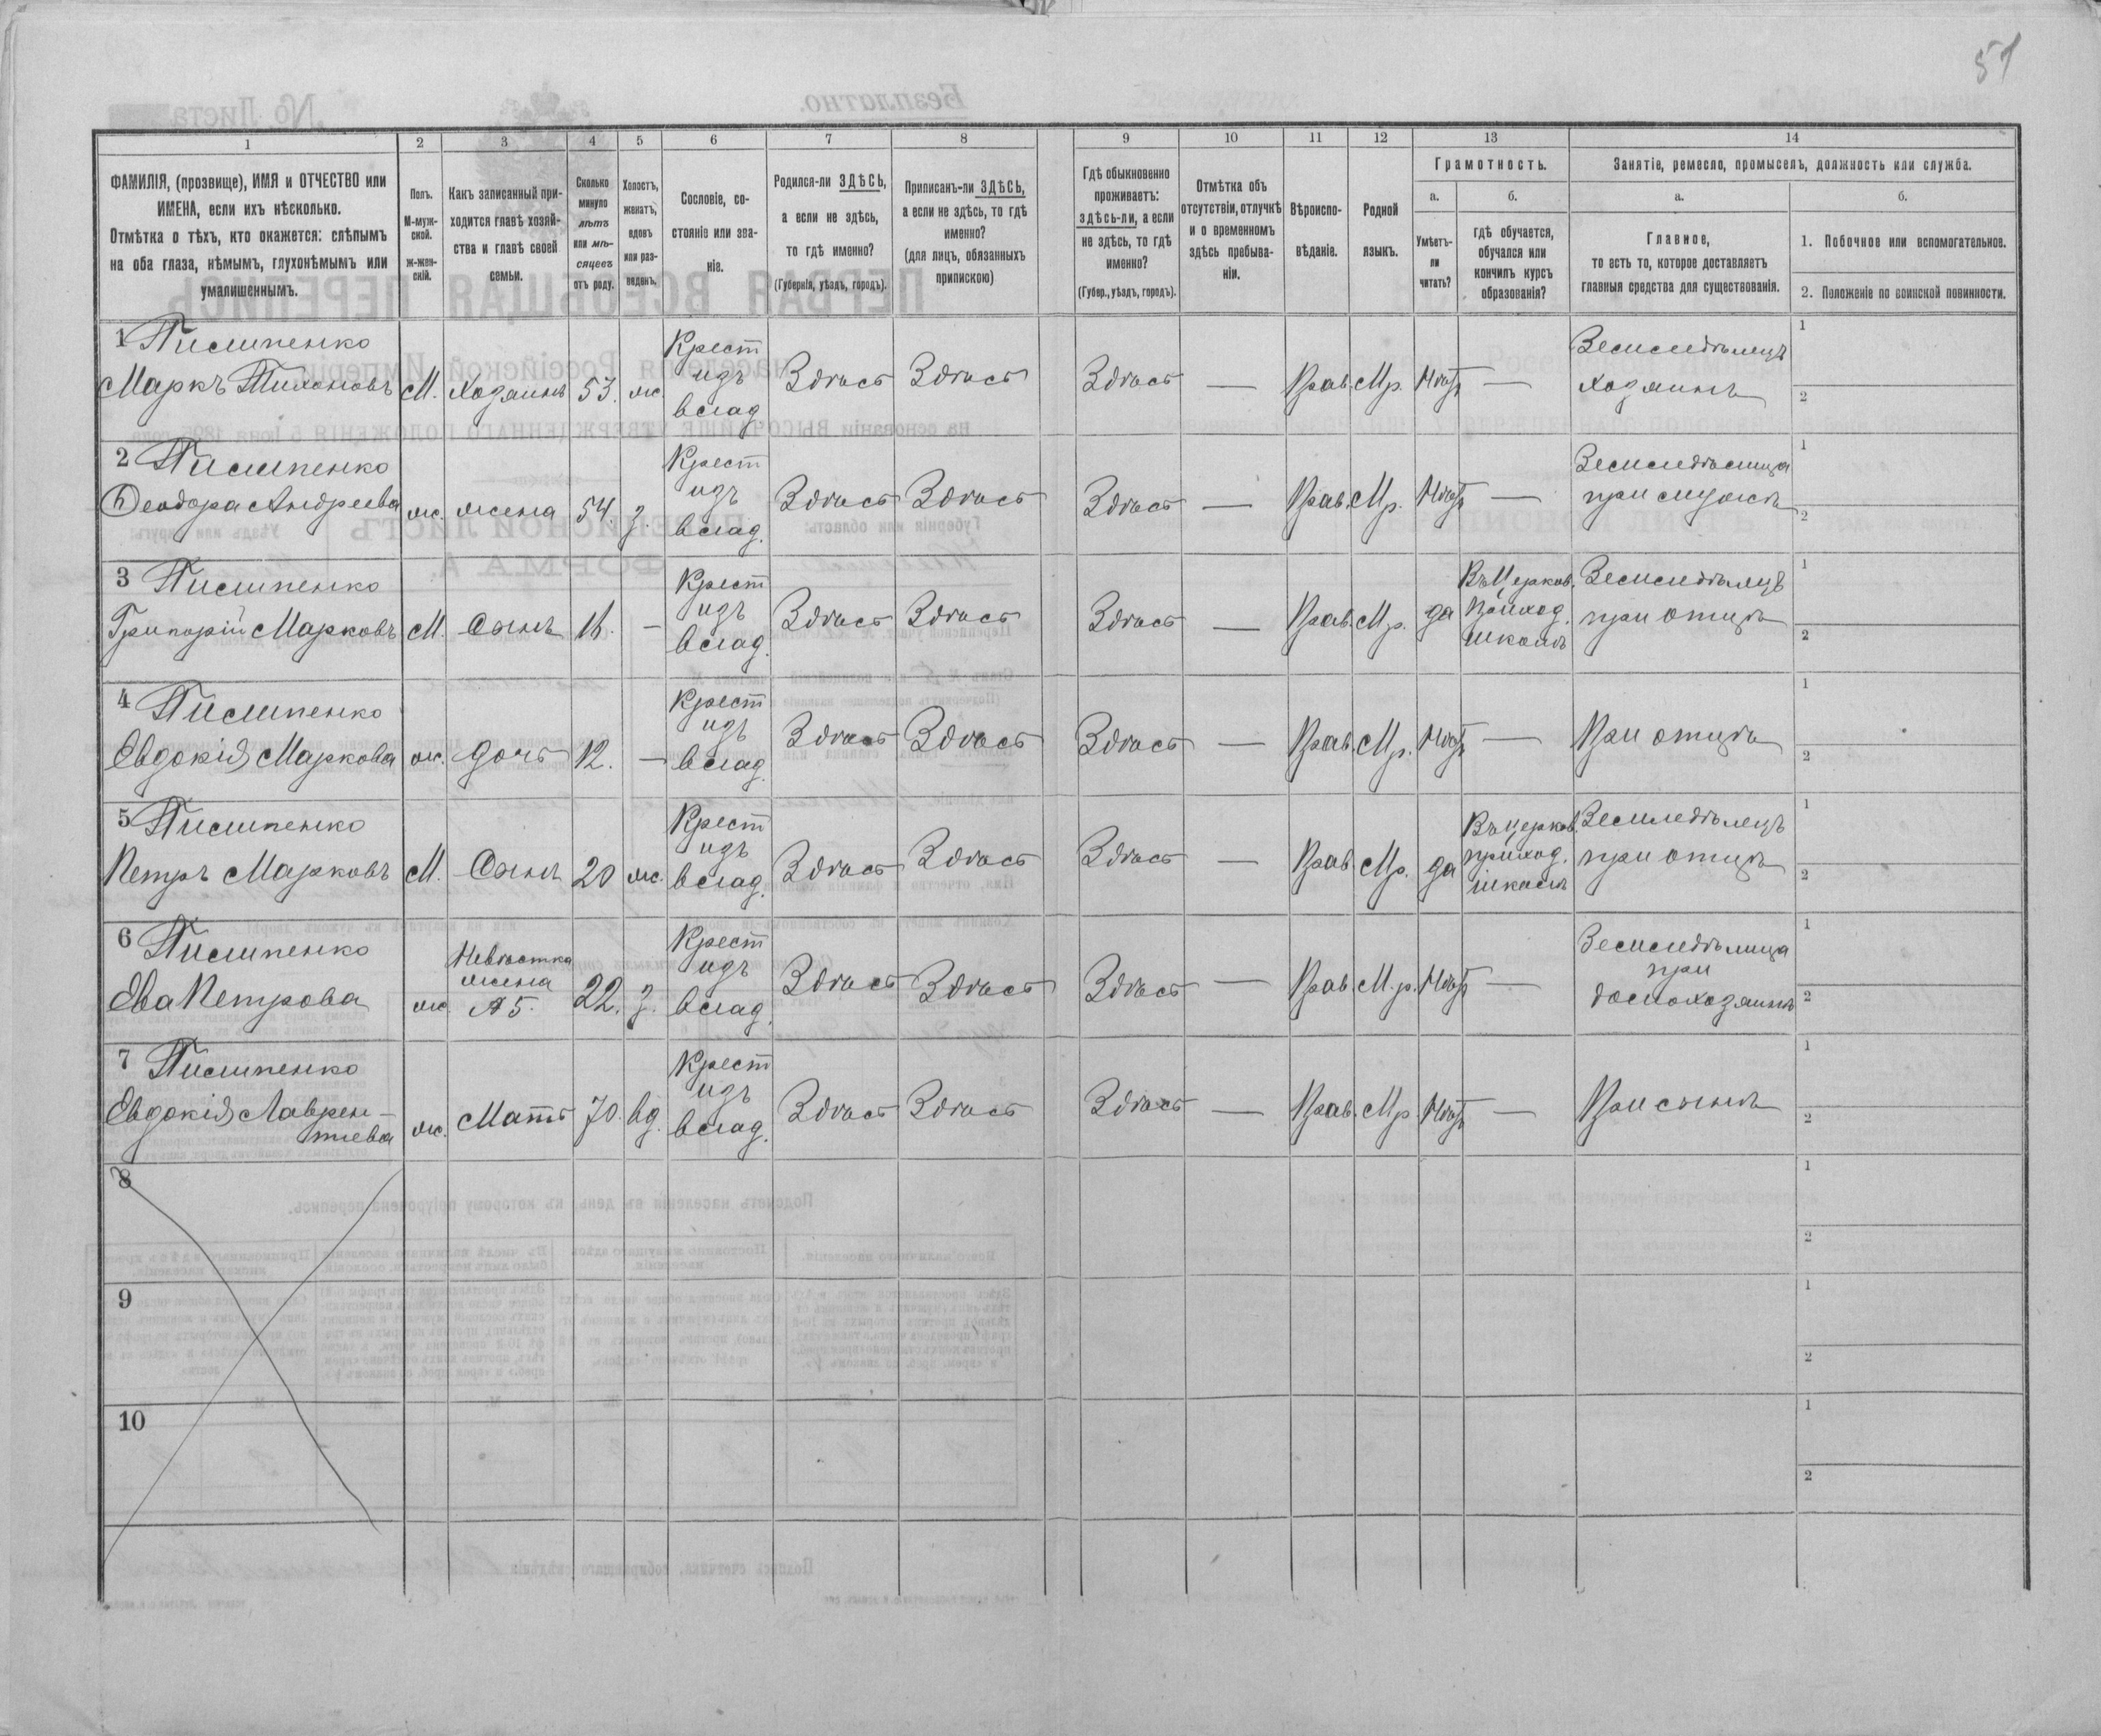 51
1 2 3 4 5 6 7 8 9 10 11 12 13 14
ФАМИЛІЯ, (прозвище), ИМЯ и ОТЧЕСТВО или
ИМЕНА, если ихъ нѣсколько.
Отмѣтка о тѣхъ, кто окажется: слѣпымъ
на оба глаза, нѣмымъ, глухонѣмымъ или
умалишеннымъ.
Полъ.
М-муж-
ской.
ж-жен-
скій.
Какъ записанный при-
ходится главѣ хозяй-
ства и главѣ своей
семьи.
Сколько
минуло
лѣтъ
или мѣ-
сяцевъ
отъ роду.
Холостъ,
женатъ,
вдовъ
или раз-
веденъ.
Сословіе, со-
стояніе или зва-
ніе.
Родился-ли ЗДѢСЬ,
а если не здѣсь,
то гдѣ именно?
(Губернія, уѣздъ, городъ).
Приписанъ-ли ЗДѢСЬ,
а если не здѣсь, то гдѣ
именно?
(для лицъ, обязанныхъ
припискою)
Гдѣ обыкновенно
проживаетъ:
здѣсь-ли, а если
не здѣсь, то гдѣ
именно?
(Губер., уѣздъ, городъ).
Отмѣтка объ
отсутствіи, отлучкѣ
и о временномъ
здѣсь пребыва-
ніи.
Вѣроиспо-
вѣданіе.
Родной
языкъ.
Грамотность.
а.
Умѣетъ-
ли
читать?
б.
гдѣ обучается,
обучался или
кончилъ курсъ
образованія?
Занятіе, ремесло, промыселъ, должность или служба.
а.
Главное,
то есть то, которое доставляетъ
главныя средства для существованія.
б.
1. Побочное или вспомогательное.
2. Положеніе по воинской повинности.
1 Пилипенко
Маркъ Тихоновъ М. Хозяинъ 53. ж. Крест изъ влад. Здѣсь Здѣсь Здѣсь — Прав. Мр. Нѣтъ — Земледѣлецъ хозяинъ 1 2
2 Пилипенко
Ѳеодора Андреева ж. жена 54. з. Крест изъ влад. Здѣсь Здѣсь Здѣсь — Прав. Мр. Нѣтъ — Земледѣлица при мужѣ 1 2
3 Пилипенко
Григорій Марковъ М. Сынъ 16. — Крест изъ влад. Здѣсь Здѣсь Здѣсь — Прав. Мр. да Въ Церков. приход. школѣ Земледѣлецъ при отцѣ 1 2
4 Пилипенко
Евдокія Маркова ж. дочь 12. — Крест изъ влад. Здѣсь Здѣсь Здѣсь — Прав. Мр. Нѣтъ — При отцѣ 1 2
5 Пилипенко
Петръ Марковъ М. Сынъ 20 ж. Крест изъ влад. Здѣсь Здѣсь Здѣсь — Прав. Мр. да Въ церков. приход. школѣ Земледѣлецъ при отцѣ 1 2
6 Пилипенко
Ева Петрова ж. Невѣстка жена № 5. 22. з. Крест изъ влад. Здѣсь Здѣсь Здѣсь — Прав. М.р. Нѣтъ — Земледѣлица при домохозяинѣ 1 2
7 Пилипенко
Евдокія Лаврен-
тіева ж. Мать 70. вд. Крест изъ влад. Здѣсь Здѣсь Здѣсь — Прав. Мр. Нѣтъ — При сынѣ 1 2
8 1 2
9 1 2
10 1 2